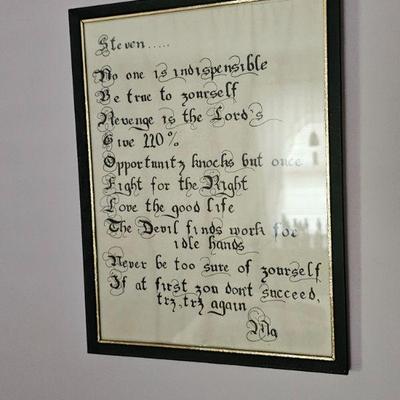 Steven.....
No one is indispensible
Be true to yourself
Revenge is the Lord's
Give 110%
Opportunity knocks but once
Fight for the Right
Love the good life
The Devil finds work for
idle hands
Never be too sure of yourself
If at first you don't succeed,
try, try again
Ma